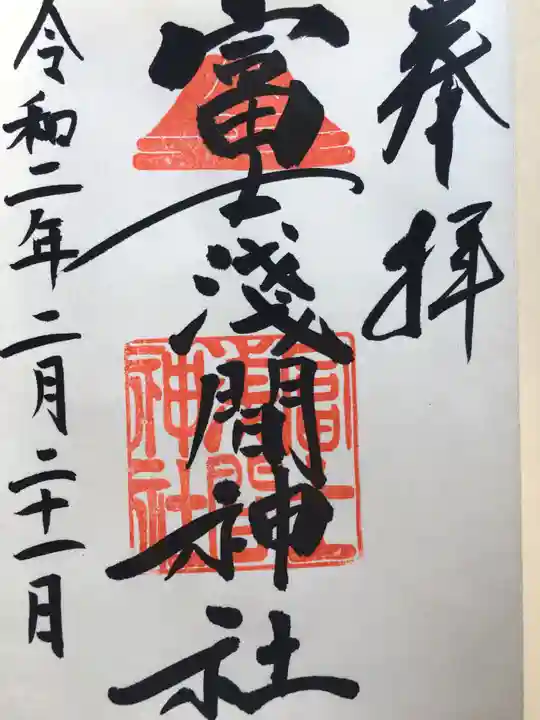 奉拝
富士淺間神社
令和二年二月二十一日
富士
淺間
神社